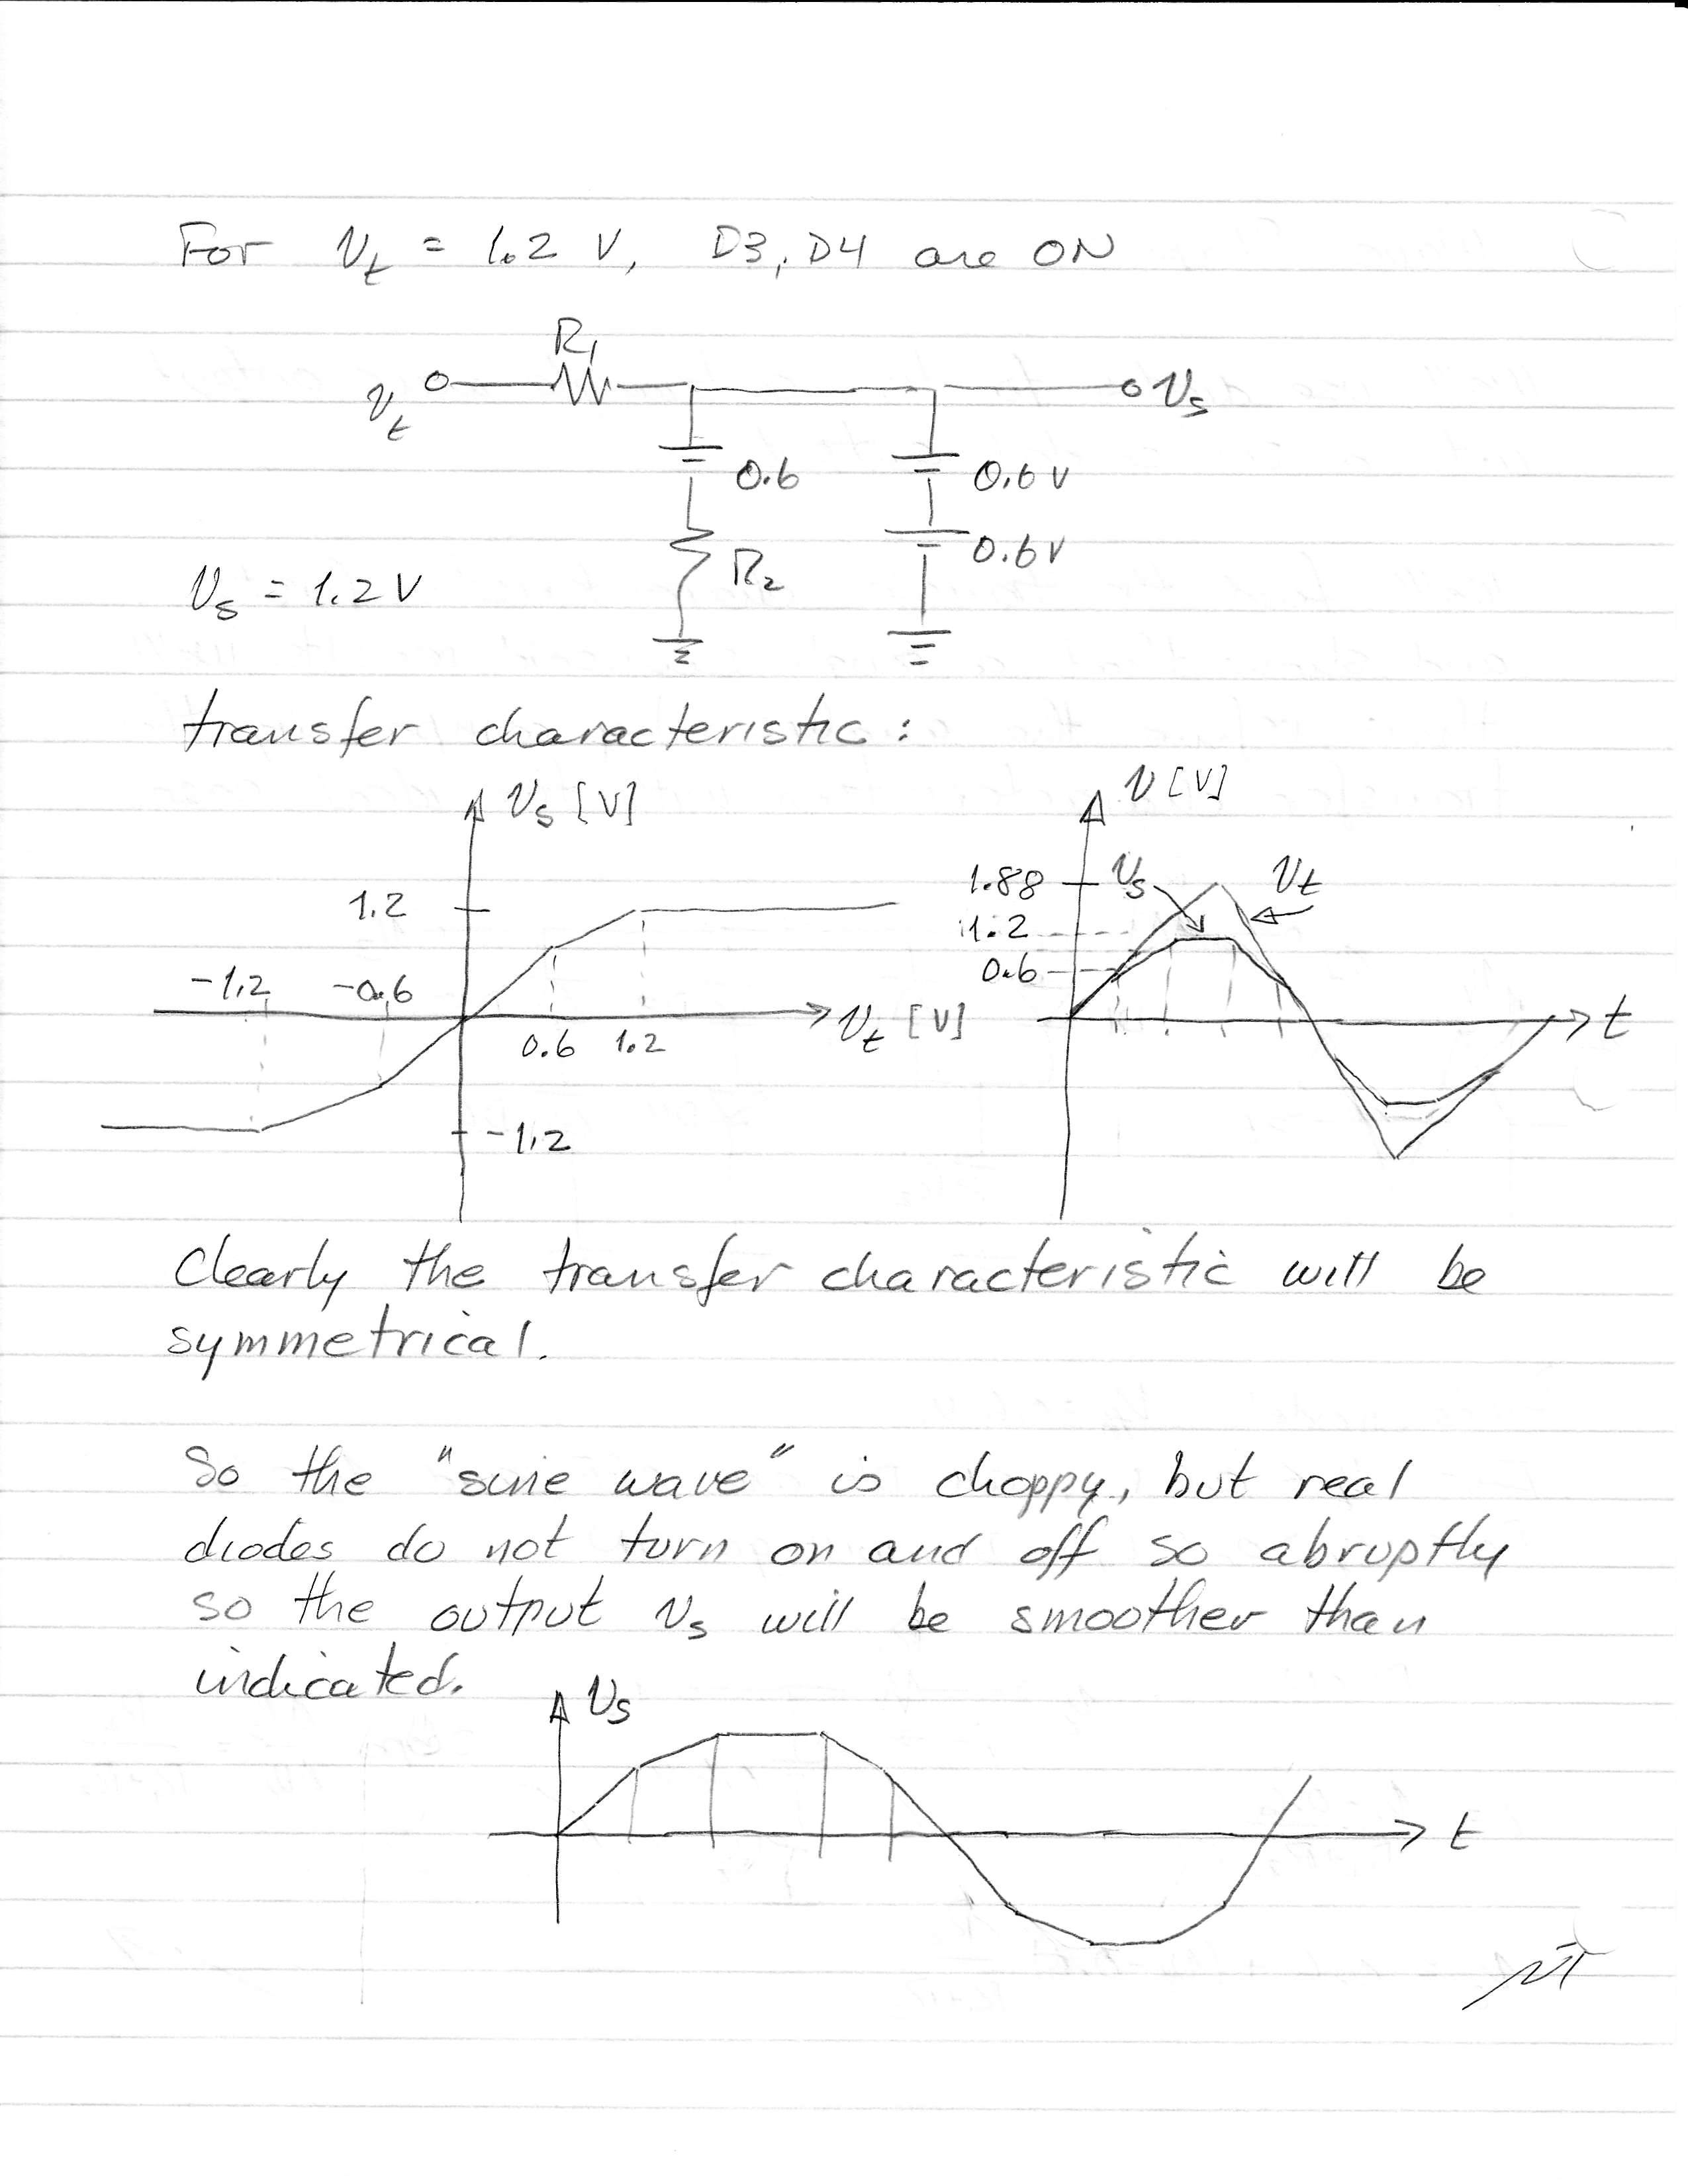 For Vt = 1.2 V, D3, D4 are ON
R1
Vt
Vs
0.6
0.6 V
0.6 V
R2
Vs = 1.2 V
transfer characteristic:
Vs [V]
1.2
-1.2
-0.6
0.6
1.2
Vt [V]
-1.2
V [V]
1.88
Vs
Vt
1.2
0.6
t
Clearly the transfer characteristic will be
symmetrical.
So the "sine wave" is choppy, but real
diodes do not turn on and off so abruptly
so the output Vs will be smoother than
indicated.
Vs
t